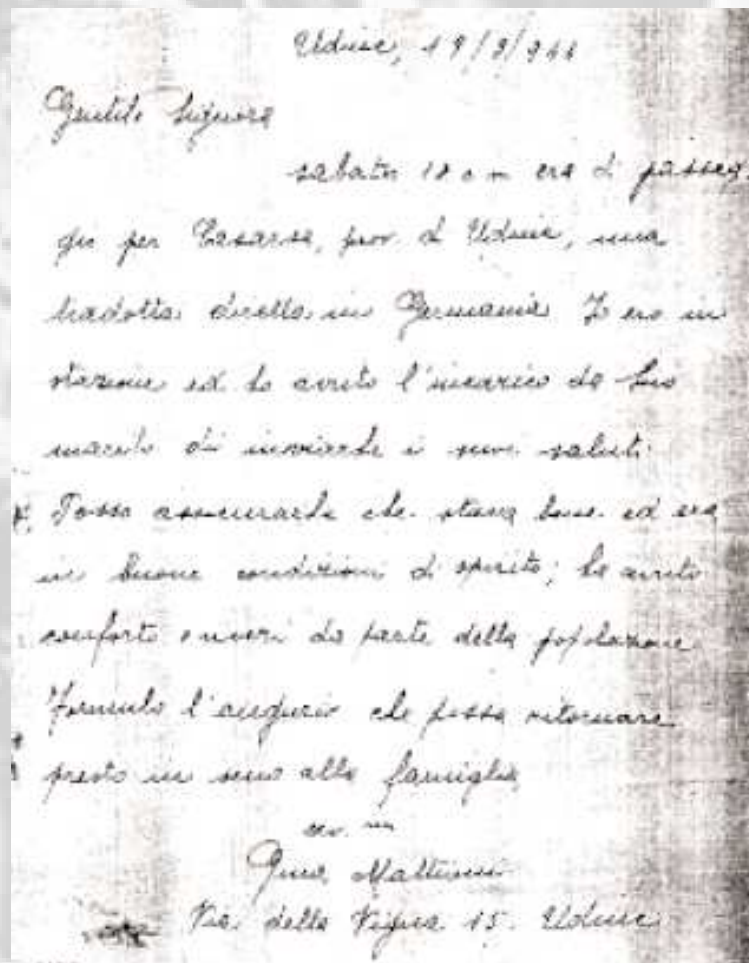 Udine, 19/9/944
Gentile Signora
sabato c. m era di passag-
gio per Casarsa, prov. d Udine, una
tradotta diretta in Germania Io ero in
stazione ed ho avuto l'incarico da Suo
marito di inviarle i suoi saluti.
Posso assicurarle che stava bene ed era
in buone condizioni di spirito; ha avuto
conforto e viveri da parte della popolazione
Formulo l'augurio che possa ritornare
presto in seno alla famiglia
Via della Vigna 15. Udine